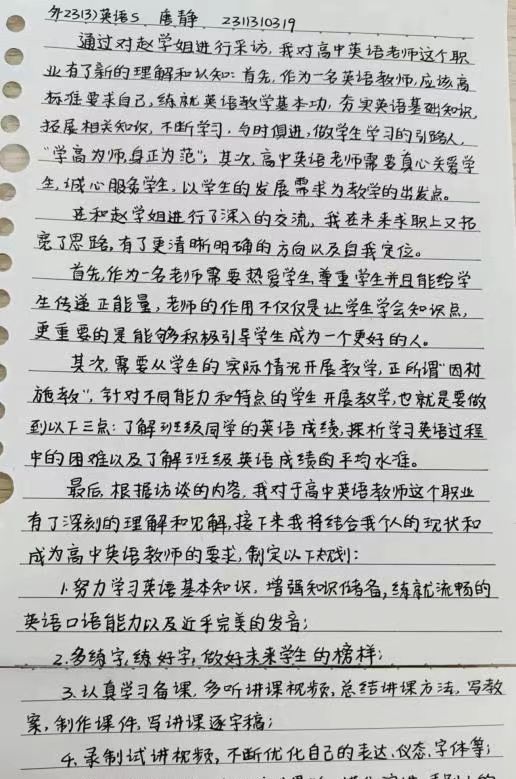 外23(3)英语S 唐静 2311310319
通过对赵学姐进行采访,我对高中英语老师这个职
业有了新的理解和认知:首先,作为一名英语教师,应该高
标准要求自己,练就英语教学基本功,夯实英语基础知识,
拓展相关知识,不断学习,与时俱进,做学生学习的引路人,
“学高为师,身正为范”;其次,高中英语老师需要真心关爱学
生,诚心服务学生,以学生的发展需求为教学的出发点。
在和赵学姐进行了深入的交流,我在未来求职上又拓
宽了思路,有了更清晰明确的方向以及自我定位。
首先,作为一名老师需要热爱学生,尊重学生并且能给学
生传递正能量,老师的作用不仅仅是让学生学会知识点,
更重要的是能够积极引导学生成为一个更好的人。
其次,需要从学生的实际情况开展教学,正所谓“因材
施教”,针对不同能力和特点的学生开展教学,也就是要做
到以下三点:了解班级同学的英语成绩,探析学习英语过程
中的困难以及了解班级英语成绩的平均水准。
最后,根据访谈的内容,我对于高中英语教师这个职业
有了深刻的理解和见解,接下来我将结合我个人的现状和
成为高中英语教师的要求,制定以下规划:
1.努力学习英语基本知识,增强知识储备,练就流畅的
英语口语能力以及近乎完美的发音;
2.多练字,练好字,做好未来学生的榜样;
3.认真学习备课,多听讲课视频,总结讲课方法,写教
案,制作课件,写讲课逐字稿;
4.录制试讲视频,不断优化自己的表达、仪态、字体等;